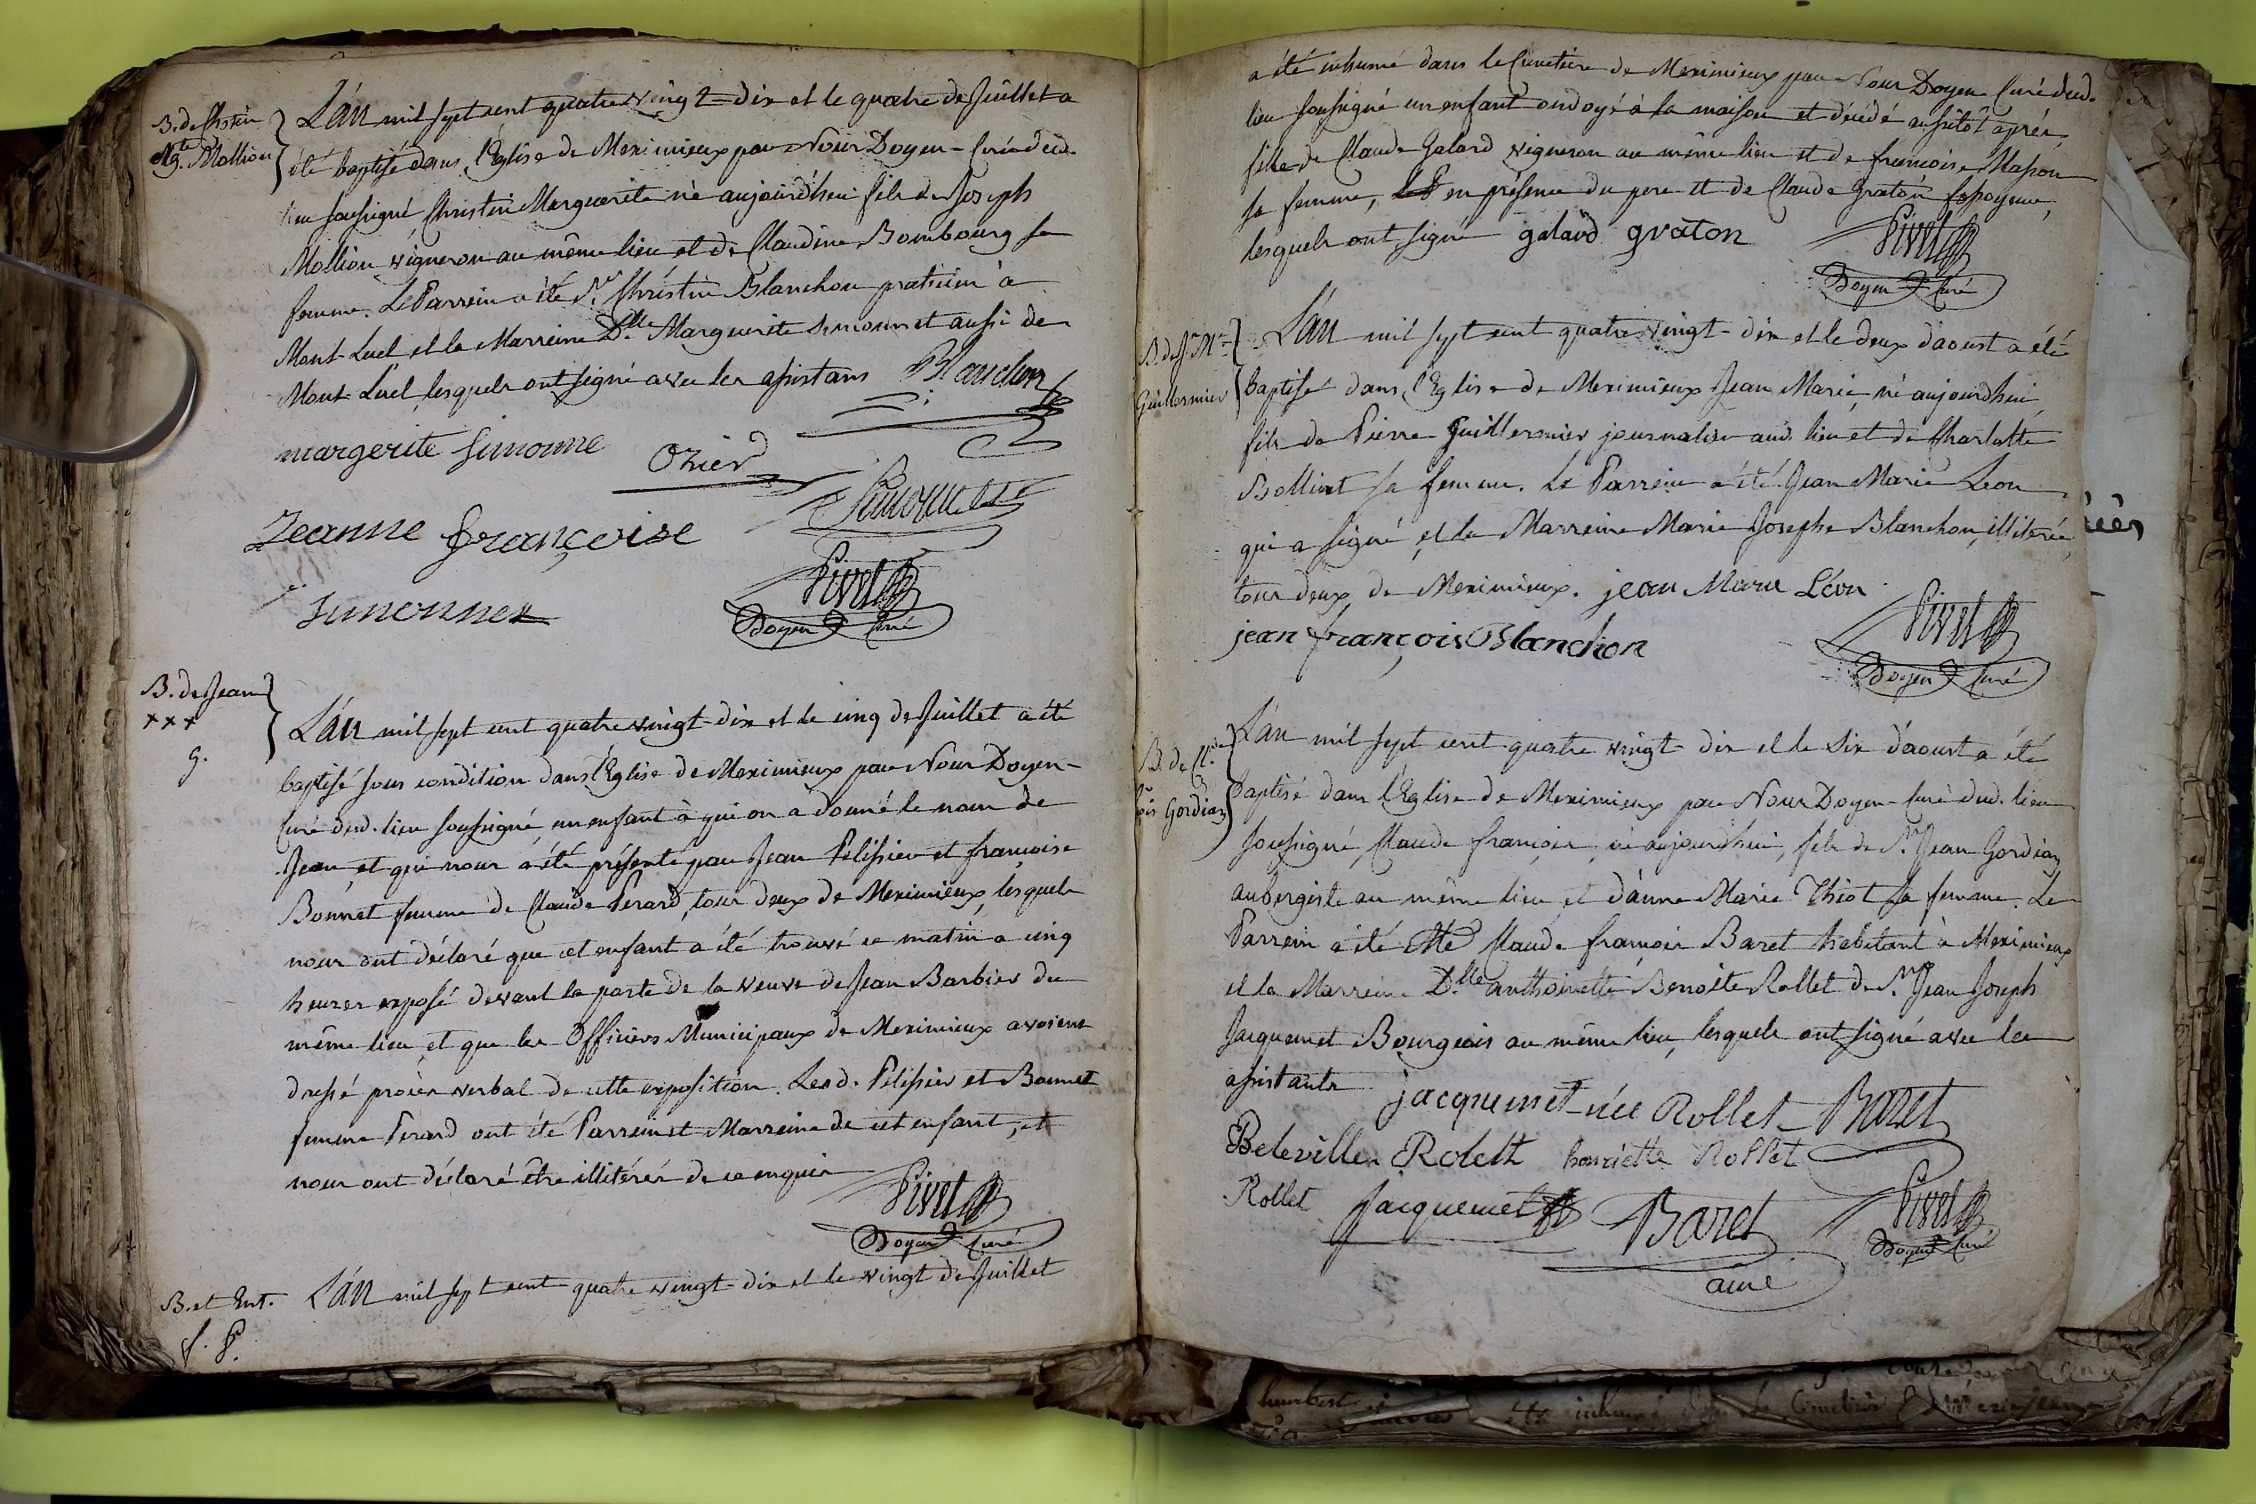 B. de Chstin
Mg.te Mollion
L'án mil sept cent quatre vingt-dix et le quatre de Juillet a
été baptisé dans l'Eglise de Meximieux par Nous Doyen-Curé dud.
lieu soussigné Christin Marguerite né aujourd'hui fils de Joseph
Mollion vigneron au même lieu et de Claudine Bombourg sa
femme. Le Parrein a été Sr. Christin Blanchon praticien à
Mont-Luel et la Marreine Dlle. Marguerite Simonnet aussi de
Mont-Luel, lesquels ont signé avec les assistans Blanchon
margerite Simonne
Ozier
Simonnet
Jeanne françoise
Simonnet
Pivet
Doyen Curé
B. de Jean
xxx
g.
L'án mil sept cent quatre vingt-dix et le cinq de Juillet a été
baptisé sous condition dans l'Eglise de Meximieux par Nous Doyen-
Curé dud. lieu soussigné, un enfant à qui on a donné le nom de
Jean, et qui nous a été présenté par Jean Pelissier et françoise
Bonnet femme de Claude Perard, tous deux de Meximieux, lesquels
nous ont déclaré que cet enfant a été trouvé ce matin a cinq
heures exposé devant la porte de la veuve de Jean Barbier du
même lieu, et que les Officiers Municipaux de Meximieux avoient
dressé procès verbal de cette exposition. Lesd. Pelissier et Bonnet
femme Perard ont été Parrein et Marreine de cet enfant, et
nous ont déclaré être illitérés de ce enquis
Pivet
Doyen Curé
B. et Ent.
f. g.
L'án mil sept cent quatre vingt-dix et le vingt de Juillet
a été inhumé dans le Cimetière de Meximieux par Nous Doyen Curé dud.
lieu soussigné un enfant ondoyé à la maison et décédé aussitôt après,
fille de Claude Galard vigneron au même lieu et de francoise Masson
sa femme, en présence du pere et de Claude Graton
lesquels ont signé galard graton
Pivet
Doyen Curé
B. de Jn. Mie
Guillermier
L'án mil sept cent quatre vingt-dix et le deux d'aoust a été
baptisé dans l'Eglise de Meximieux Jean Marie, né aujourdhui,
fils de Pierre Guillermier journalier aud. lieu et de Charlotte
Bollivet sa femme. Le Parrein a été Jean Marie Leon
qui a signé, et la Marreine Marie Josephe Blanchon, illitérée,
tous deux de Meximieux. jean Marie Léon
jean françois Blanchon
Pivet
Doyen Curé
B. de Cl.de
fois Gordian
L'án mil sept cent quatre vingt-dix et le six d'aoust a été
baptisé dans l'Eglise de Meximieux par Nous Doyen-Curé dud. lieu
soussigné, Claude françois, né aujourdhui, fils de Sr. Jean Gordian
aubergiste au même lieu, et d'anne Marie Thiot sa femme. Le
Parrein a été Me Claude françois Baret habitant à Meximieux
et la Marreine Dlle anthoinette Benoite Rollet de Sr. Jean Joseph
Jacquemet Bourgeois au même lieu, lesquels ont signé avec les
assistants jacquemet née Rollet Baret
Beleville Rolett henriette Rollet
Rollet Jacquemet Baret
ainé
Pivet
Doyen Curé